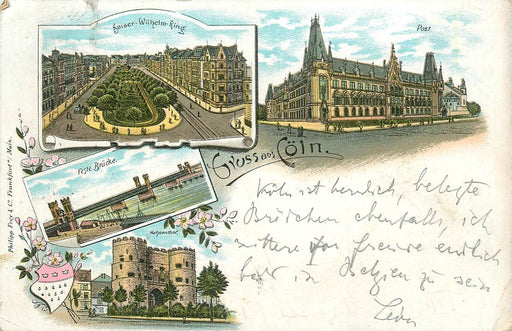 Kaiser-Wilhelm-Ring.
Post.
Gruss aus Cöln.
Feste Brücke.
Hahnenthor
Philipp Frey & C. Frankfurt a/Main.
Köln ist herrlich, belegte
Brödchen ebenfalls, ich
vor Freude endlich
bald in Belgien zu sein